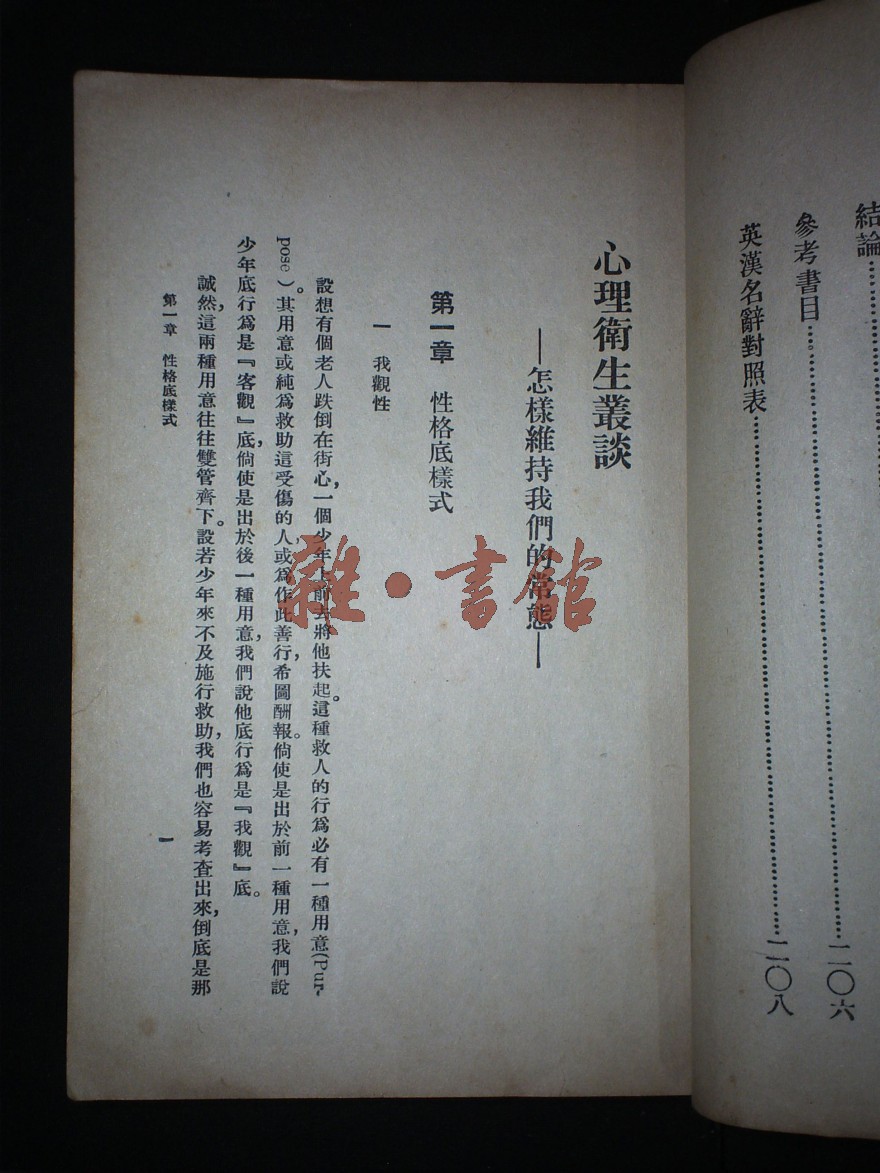 結論
參考書目 二〇六
英漢名辭對照表 二〇八
心理衛生叢談
—怎樣維持我們的常態—
第一章 性格底樣式
一 我觀性
設想有個老人跌倒在街心,一個少年上前去將他扶起。這種救人的行爲必有一種用意(Pur-
pose)。其用意或純爲救助這受傷的人,或爲作此善行,希圖酬報。倘使是出於前一種用意,我們說
少年底行爲是『客觀』底,倘使是出於後一種用意,我們說他底行爲是『我觀』底。
誠然,這兩種用意往往雙管齊下。設若少年來不及施行救助,我們也容易考查出來,倒底是那
第一章 性格底樣式
一
雜·書館